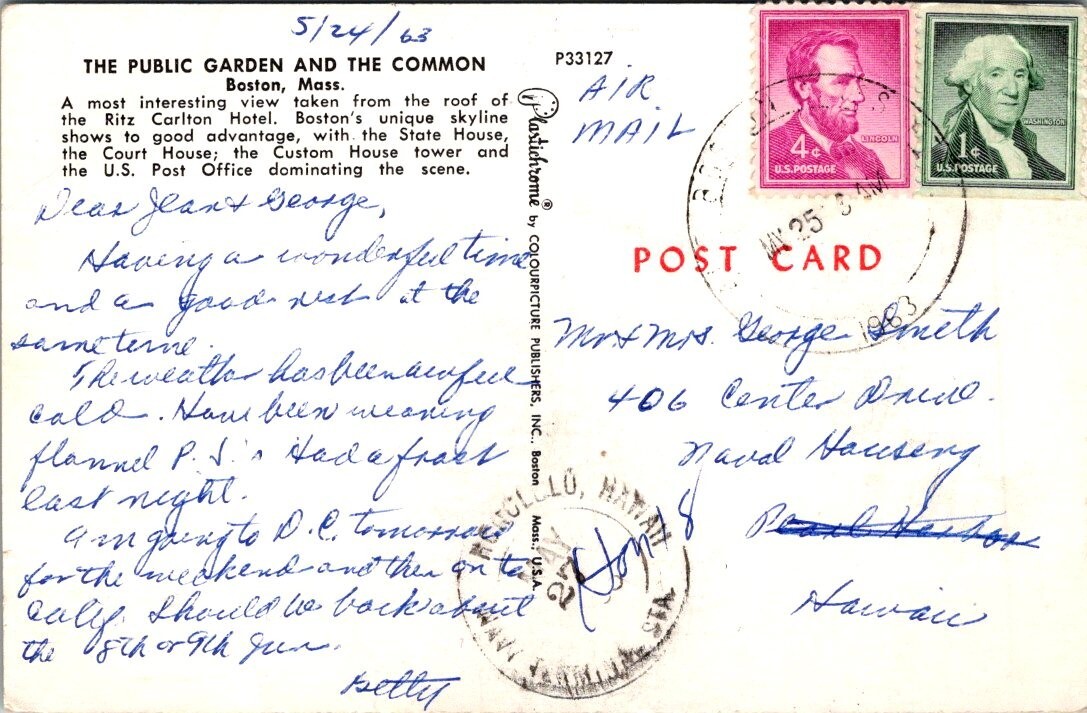 5/24/63
THE PUBLIC GARDEN AND THE COMMON
Boston, Mass.
A most interesting view taken from the roof of
the Ritz Carlton Hotel. Boston's unique skyline
shows to good advantage, with the State House,
the Court House; the Custom House tower and
the U.S. Post Office dominating the scene.
Dear Jean & George,
Having a wonderful time
and a good rest at the
same time.
The weather has been awful
cold. Have been wearing
flannel P.J.'s Had a frost
last night.
Am going to D.C. tomorrow
for the weekend and then on to
Calif. Should be back about
the 8th or 9th Jun.
Betty
Plastichrome ® by COLOURPICTURE PUBLISHERS, INC., Boston Mass., U.S.A.
P33127
AIR
MAIL
4¢
LINCOLN
U.S. POSTAGE
WASHINGTON
1¢
U.S. POSTAGE
MY 25 8 AM
1963
POST CARD
Mr & Mrs. George Smith
406 Center Drive.
Naval Housing
Pearl Harbor
Hon 18
Hawaii
HONOLULU, HAWAII
MAY
27